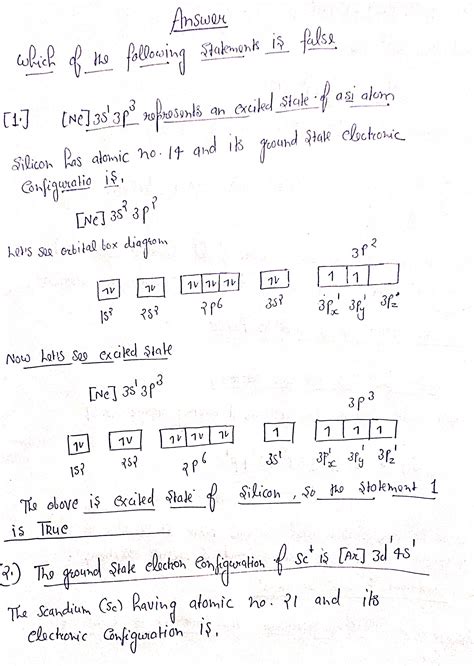 Answer
which of the following statements is false
[1.] [Ne] 3s¹ 3p³ represents an excited state of a si atom
Silicon has atomic no. 14 and its ground state electronic
Configuratio is,
[Ne] 3s² 3p²
Let's see orbital box diagram
3p²
1s² 2s² 2p⁶ 3s² 3px¹ 3py¹ 3pz°
Now Let's see excited state
[Ne] 3s¹ 3p³
3p³
1s² 2s² 2p⁶ 3s¹ 3px¹ 3py¹ 3pz¹
The above is excited state of Silicon, so the statement 1
is True
(2.) The ground state electron Configuration of Sc⁺ is [Ar] 3d¹ 4s¹
The Scandium (Sc) having atomic no. 21 and its
electronic Configuration is,